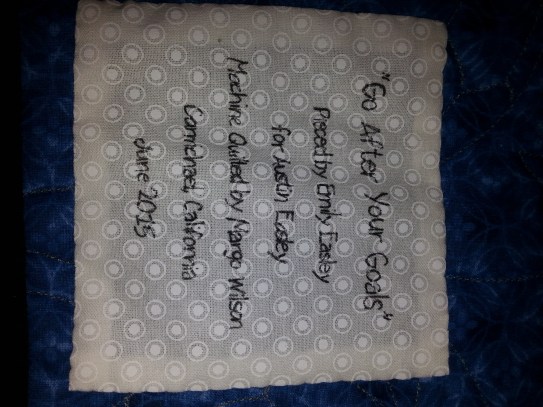 "Go After Your Goals"
Pieced by Emily Easley
for Austin Easley
Machine Quilted by Margo Wilson
Carmichael, California
June 2015